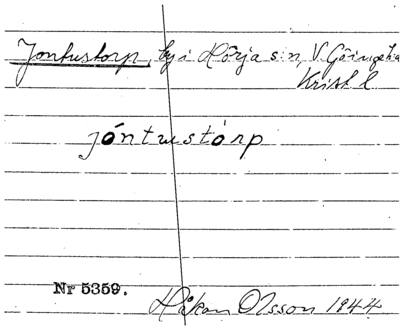 Jontustorp, by i Hörja sn, V. Göinge hd
Krist. l
jóntustòrp
Nr 5359.
Håkan Olsson 1944